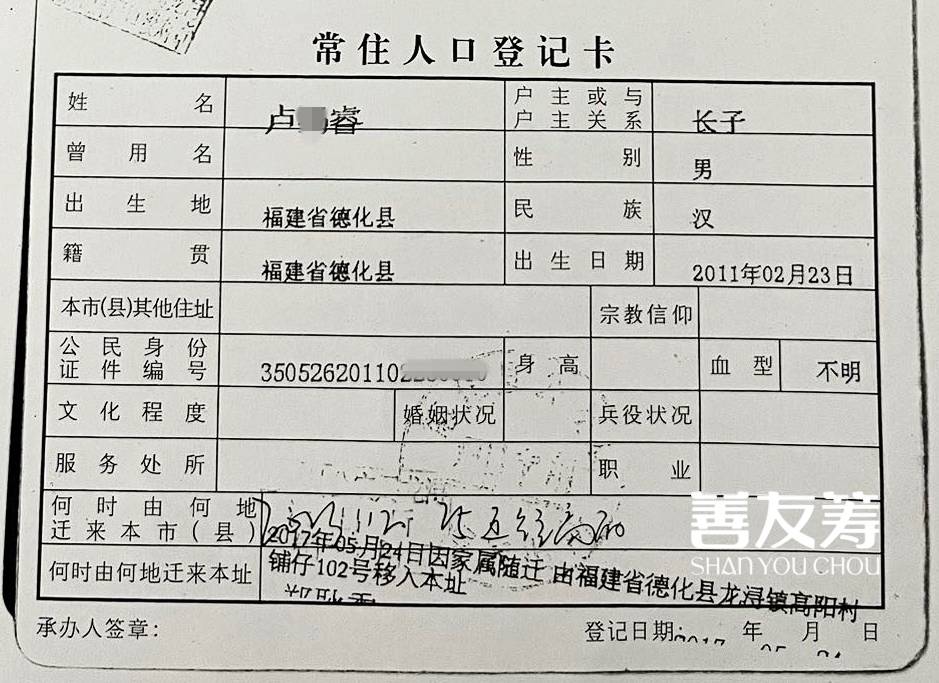 常住人口登记卡
姓名 卢 睿 户主或与户主关系 长子
曾用名 性别 男
出生地 福建省德化县 民族 汉
籍贯 福建省德化县 出生日期 2011年02月23日
本市(县)其他住址 宗教信仰
公民身份证件编号 350526201102 身高 血型 不明
文化程度 婚姻状况 兵役状况
服务处所 职业
何时由何地迁来本市(县)
何时由何地迁来本址 2017年05月24日因家属随迁 由福建省德化县龙浔镇高阳村
铺仔102号移入本址
善友筹
SHAN YOU CHOU
承办人签章: 登记日期: 2017年05月24日